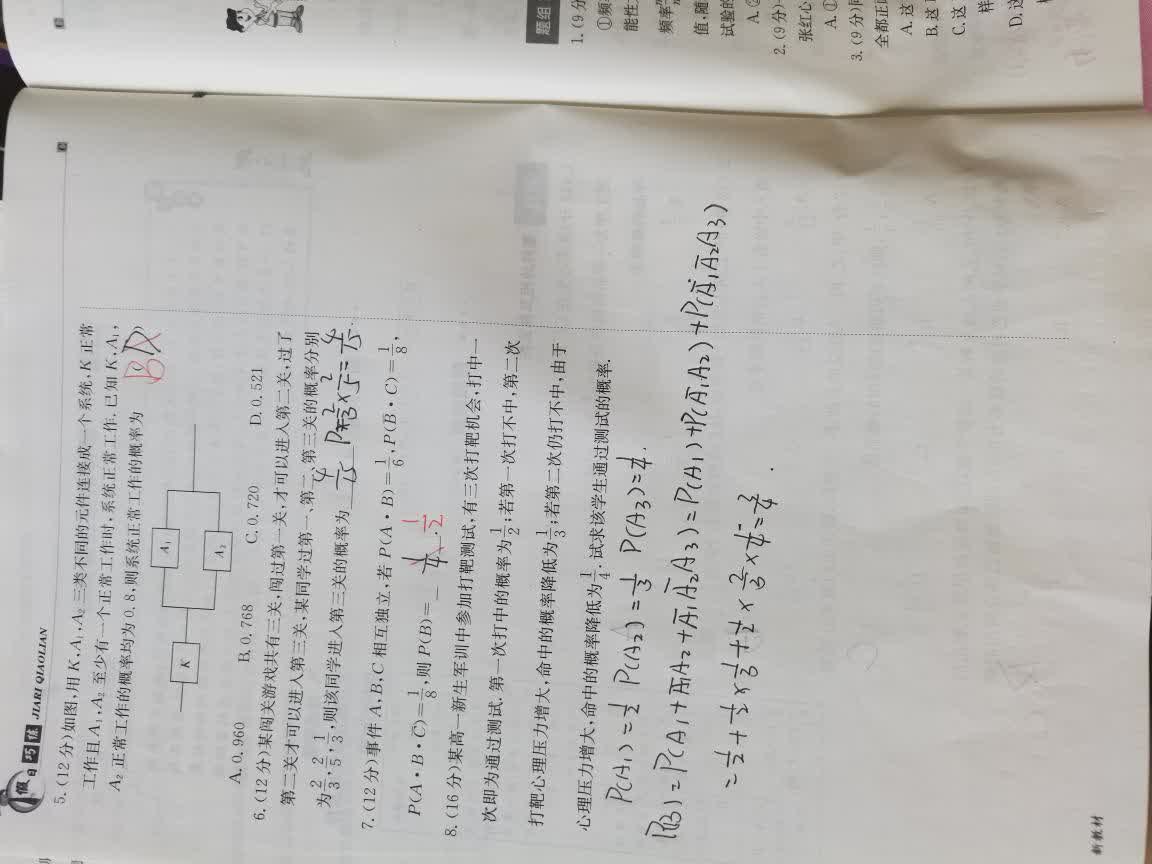 假日巧练 JIARI QIAOLIAN
5. (12分)如图,用K、A₁、A₂三类不同的元件连接成一个系统,K正常
工作且A₁、A₂至少有一个正常工作时,系统正常工作,已知K、A₁、
A₂正常工作的概率均为0.8,则系统正常工作的概率为
B
K
A₁
A₂
A. 0.960 B. 0.768 C. 0.720 D. 0.521
6. (12分)某闯关游戏共有三关,闯过第一关,才可以进入第二关,过了
第二关才可以进入第三关,某同学过第一、第二、第三关的概率分别
为2/3,2/5,1/3,则该同学进入第三关的概率为 4/15 P=2/3×2/5=4/15.
7. (12分)事件A,B,C相互独立,若P(A·B)=1/6,P(B̄·C)=1/8,
P(A·B·C̄)=1/8,则P(B)= 1/4. 1/2
8. (16分)某高一新生军训中参加打靶测试,有三次打靶机会,打中一
次即为通过测试.第一次打中的概率为1/2;若第一次打不中,第二次
打靶心理压力增大,命中的概率降低为1/3;若第二次仍打不中,由于
心理压力增大,命中的概率降低为1/4.试求该学生通过测试的概率.
P(A1)=1/2 P(A2)=1/3 P(A3)=1/4.
P(B)=P(A1+Ā1A2+Ā1Ā2A3)=P(A1)+P(Ā1A2)+P(Ā1Ā2A3)
=1/2+1/2×1/3+1/2×2/3×1/4=3/4.
新教材
题组
1. (9分
①频
能性
频率
值,随
试验的
2. (9分)
张红心
A. ①
3. (9分)同
全都正面
A. 这
B. 这
C. 这
样
D. 这